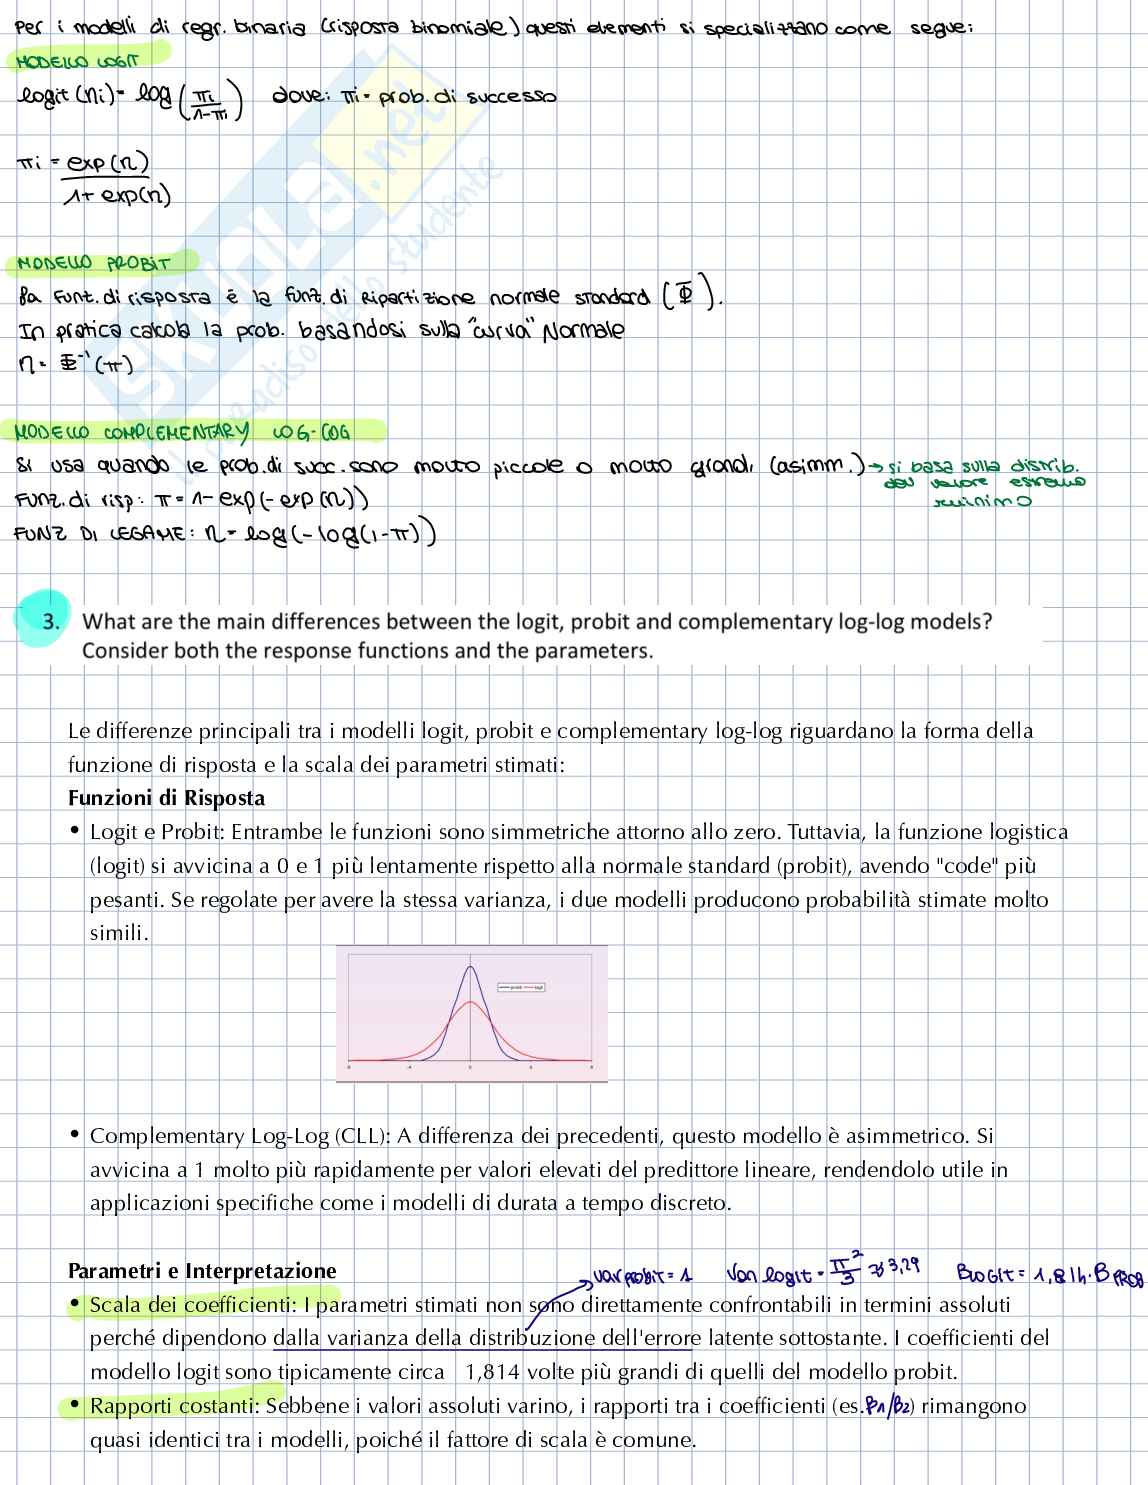 Per i modelli di regr. binaria (risposta binomiale) questi elementi si specializzano come segue:
MODELLO LOGIT
logit(ηi) = log(πi/1-πi) dove: πi = prob. di successo
πi = exp(η)
1+ exp(η)
MODELLO PROBIT
la funt. di risposta è la funz. di Ripartizione normale standard (Φ).
In pratica calcola la prob. basandosi sulla "curva" Normale
η = Φ⁻¹(π)
MODELLO COMPLEMENTARY LOG-LOG
Si usa quando le prob. di succ. sono molto piccole o molto grandi (asimm.) → si basa sulla distrib.
del valore estremo
minimo
Funz. di risp: π = 1- exp(- exp(η))
FUNZ DI LEGAME: η = log(-log(1-π))
3. What are the main differences between the logit, probit and complementary log-log models?
Consider both the response functions and the parameters.
Le differenze principali tra i modelli logit, probit e complementary log-log riguardano la forma della
funzione di risposta e la scala dei parametri stimati:
Funzioni di Risposta
• Logit e Probit: Entrambe le funzioni sono simmetriche attorno allo zero. Tuttavia, la funzione logistica
(logit) si avvicina a 0 e 1 più lentamente rispetto alla normale standard (probit), avendo "code" più
pesanti. Se regolate per avere la stessa varianza, i due modelli producono probabilità stimate molto
simili.
probit logit
• Complementary Log-Log (CLL): A differenza dei precedenti, questo modello è asimmetrico. Si
avvicina a 1 molto più rapidamente per valori elevati del predittore lineare, rendendolo utile in
applicazioni specifiche come i modelli di durata a tempo discreto.
Parametri e Interpretazione
var probit = 1 Var logit = π²/3 ≈ 3,29 βLOGIT = 1,814·βPROB
• Scala dei coefficienti: I parametri stimati non sono direttamente confrontabili in termini assoluti
perché dipendono dalla varianza della distribuzione dell'errore latente sottostante. I coefficienti del
modello logit sono tipicamente circa 1,814 volte più grandi di quelli del modello probit.
• Rapporti costanti: Sebbene i valori assoluti varino, i rapporti tra i coefficienti (es. β1/β2) rimangono
quasi identici tra i modelli, poiché il fattore di scala è comune.
SKUOLA.net
il paradiso dello studente